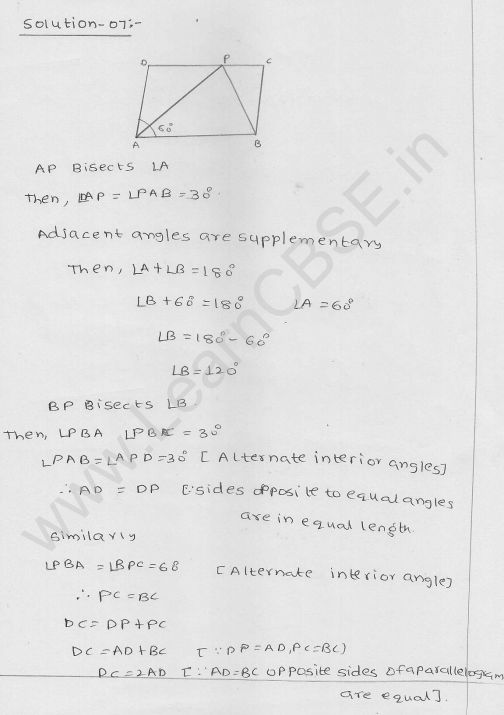 Solution-07:-
D P C
60°
A B
AP Bisects ∠A
Then, ∠DAP = ∠PAB = 30°.
Adjacent angles are supplementary
Then, ∠A + ∠B = 180°
∠B + 60° = 180° ∠A = 60°
∠B = 180° - 60°
∠B = 120°
BP Bisects ∠B
Then, ∠PBA ∠PBC = 30°
∠PAB = ∠APD = 30° [Alternate interior angles]
∴ AD = DP [∵ sides opposite to equal angles
are in equal length.
Similarly
∠PBA = ∠BPC = 60 [Alternate interior angle]
∴ PC = BC
DC = DP + PC
DC = AD + BC [∵ DP = AD, PC = BC)
DC = 2AD [∵ AD = BC opposite sides of a parallelogram
are equal].
www.LearnCBSE.in